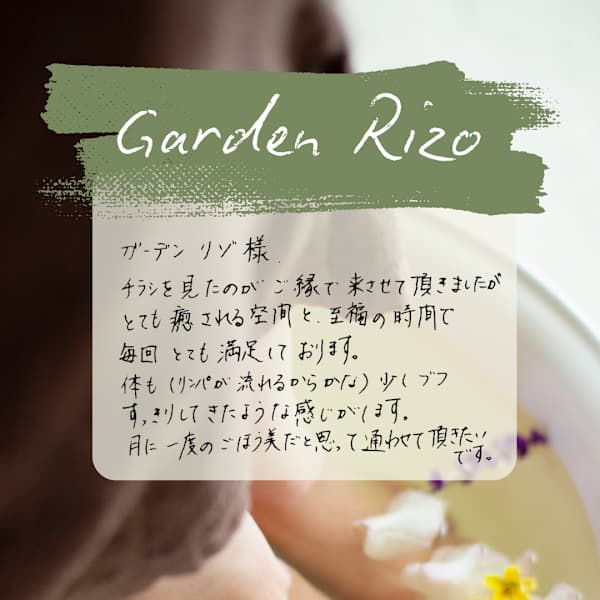 Garden Rizo
ガーデン リゾ 様.
チラシを見たのが ご縁で 来させて頂きましたが
とても 癒される空間と、至福の時間で
毎回 とても 満足して おります。
体も (リンパが 流れるからかな) 少し
すっきりしてきたような感じがします。
月に一度のごほう美だと思って通わせて頂きたい
です。